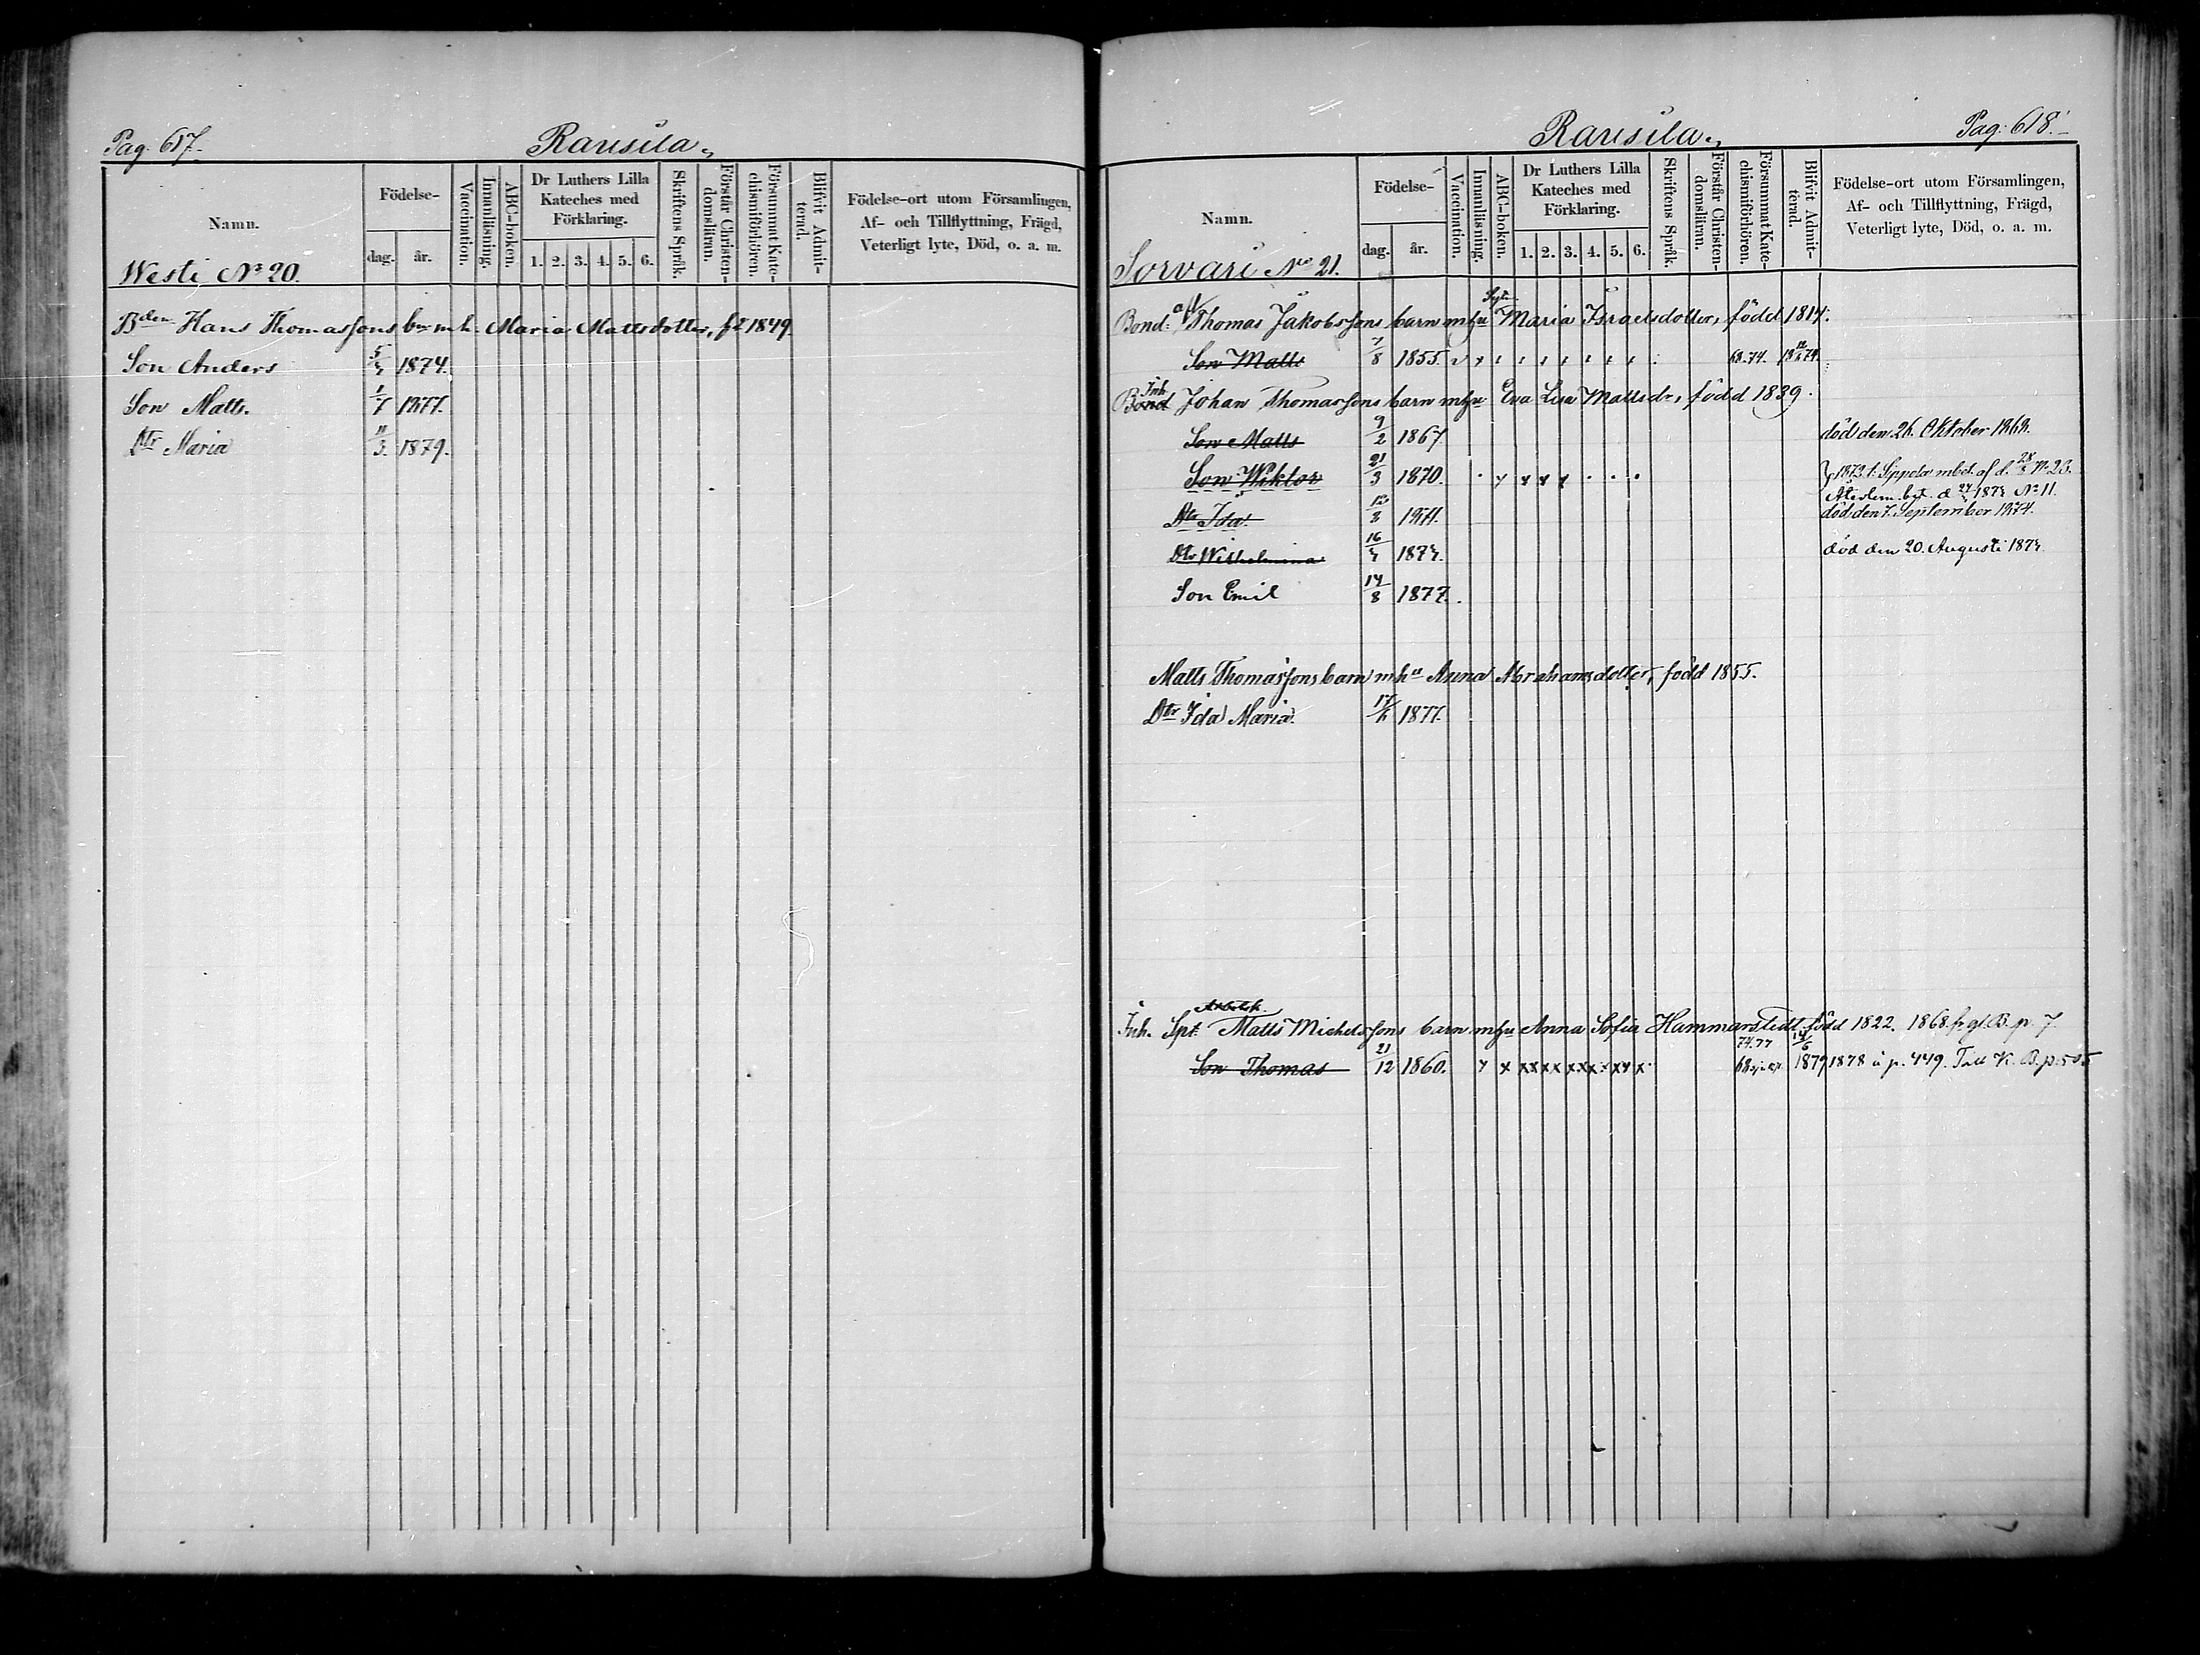 Pag. 617.
Rausila.
Namn.
Födelse-
dag.
år.
Vaccination.
Innanläsning.
ABC-boken.
Dr Luthers Lilla Kateches med Förklaring.
1. 2. 3. 4. 5. 6.
Skriftens Språk.
Förstår Christendomsläran.
Försummat Katechismiförhören.
Blifvit Admitterad.
Födelse-ort utom Församlingen,
Af- och Tillflyttning, Frägd,
Veterligt lyte, Död, o. a. m.
Westi No 20.
Bden Hans Thomassons bn m. h. Maria Mattsdotter, f. 1849.
Son Anders 1874.
Son Matts. 1877.
Dtr Maria 11/3. 1879.
Rausila.
Pag. 618.
Namn.
Födelse-
dag.
år.
Vaccination.
Innanläsning.
ABC-boken.
Dr Luthers Lilla Kateches med Förklaring.
1. 2. 3. 4. 5. 6.
Skriftens Språk.
Förstår Christendomsläran.
Försummat Katechismiförhören.
Blifvit Admitterad.
Födelse-ort utom Församlingen,
Af- och Tillflyttning, Frägd,
Veterligt lyte, Död, o. a. m.
Sorvari No 21.
Bond. Thomas Jakobssons barn mhu Maria Israelsdotter, född 1814.
Son Matts 7/8 1855. 68.74.
Inh. Bond Johan Thomassons barn mhu Eva Lisa Mattsdr, född 1839.
Son Matts 9/2 1867 död den 26. Oktober 1868.
Son Wiktor 21/3 1870. 1873 t. Sippola m bet. af d. 28 No 23.
Återlem. bet. d No 11.
Dtr Ida död den 7. September 1874.
Dtr Wilhelmina död den 20. Augusti
Son Emil 14/8 1877.
Matts Thomassons barn mha Anna Abrahamsdotter, född 1855.
Dtr Ida Maria. 1877.
Inh. Spt. Matts Michelssons barn mhu Anna Sofia Hammarstedt född 1822. 1868 fr gl. B. p. 7.
Son Thomas 21/12 1860. 1879 1878 å p. 449. K. B. p. 505